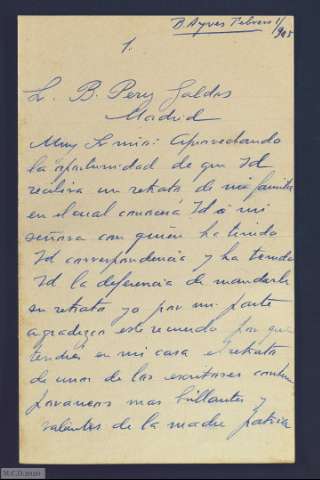 B. Ayres Febrero 1/905
1.
S. B. Perez Galdos
Madrid
Muy Sr mio: Aprovechando
la oportunidad de que Vd
recibira un retrato de mi familia
en el cual conocerá Vd á mi
señora con quien ha tenido
Vd correspondencia y ha tenido
Vd la deferencia de mandarle
su retrato yo por mi parte
agradezco este recuerdo por que
tendré en mi casa el retrato
de unos de los escritores contem
poraneos mas brillantes y
valientes de la madre patria